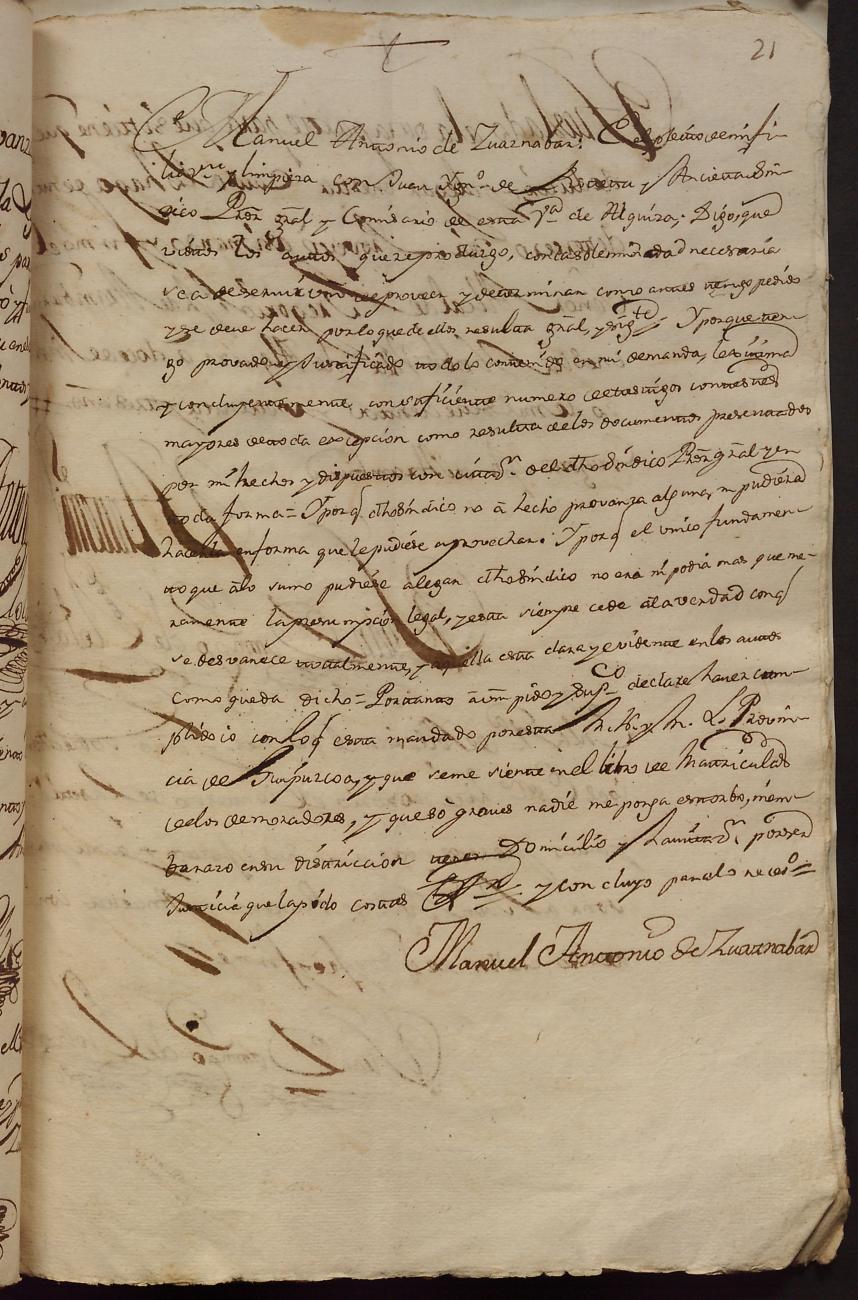 21
Manuel Antonio de Zuaznabar: En el pleito de mi fi-
liaçon y limpieza con Juan Ygnº de y Ancieta Sin-
dico Prõr gñal y Comisario de esta Vª de Alquiza; Digo, que
vistos los autos que reproduzgo, con la solemnidad necesaria
se a de servir vm de proveer y determinar como antes tengo pedido
y se deve hacer por lo que de ellos resulta gñal, y Y porque ten-
go provado y Justificado todo lo contenido en mi demanda, lexitima
y concluyentemente, con suficiente numero de testigos contestes
mayores de toda excepcion como resulta de los documentos presentados
por mi hechos y dispuestos con citaçon del dho Sindico Prõr gñal y en
toda forma= Y porq dho Sindico no a hecho provanza alguna, ni pudiera
hacerla en forma que le pudiese aprovechar. Y porq el unico fundamen-
to que a lo sumo pudiese alegar dho Sindico no era ni podia mas que me-
ramente la presumpcion legal, y esta siempre cede a la verdad con q
se desvanece totalmente, y aquella esta clara y evidente en los autos
como queda dicho= Portanto a vm pido y suppco declare haver cum-
plido io con lo q esta mandado por esta M. N. y M. L. Provin-
cia de Guipuzcoa, y que se me siente en el libro de Matriculas
de los demoradores, y que sò graves nadie me ponga estorbo, ni em-
barazo en su districcion tener Domicilio y havitaçon por ser
Justicia que la pido costas y concluyo para lo neceso=
Manuel Antonio de Zuaznabar